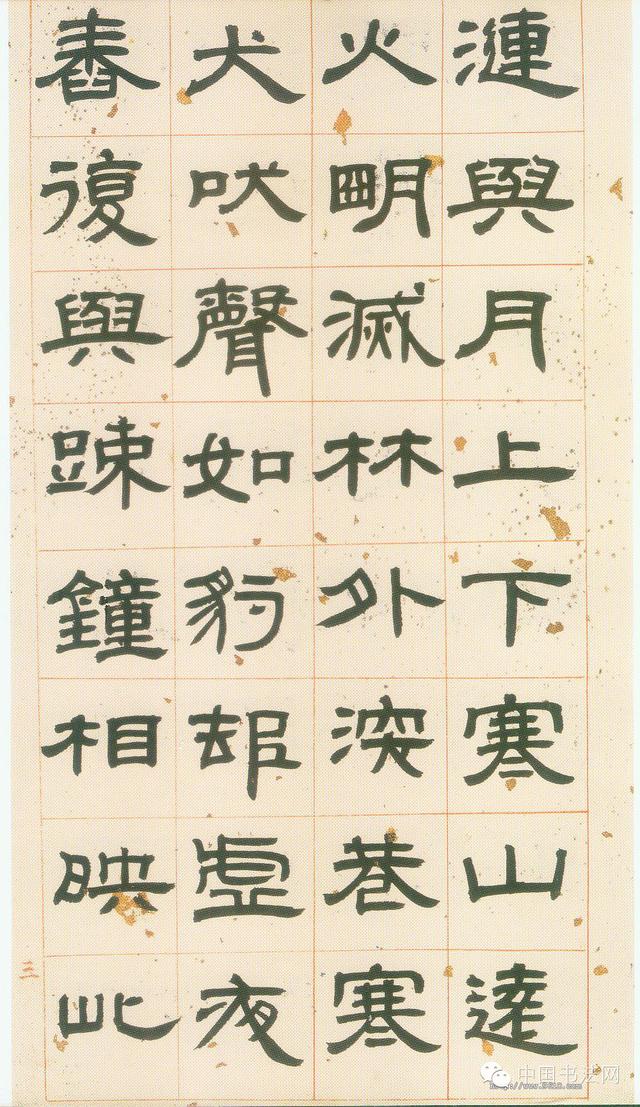 漣與月上下寒山遠
火明滅林外深巷寒
犬吠聲如豹邨虛夜
舂復與踈鐘相映此
三
中国书法网
http://www.9610.com